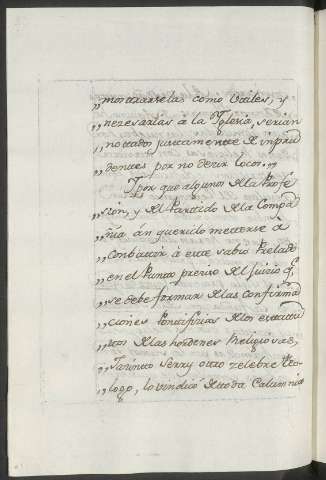 „mostrarselas como Utiles, y
„nezesarias à la Yglesia, serian
„notados justamente de inpru
„dentes por no dezir locos„
Ypor que algunos de la Profe
„sion, y del Partido de la Compa
„ñia án querido metterse à
„conbattir à este sabio Prelado
„en el Punto preziso del Juizio q.^e
„se debe formar de las confirma
„ciones Pontifizias de los estattu
„tos de las hordenes Religiosas,
„Jazintto Serry otro zelebre theo
„logo, lo vindicó de toda Calumnia